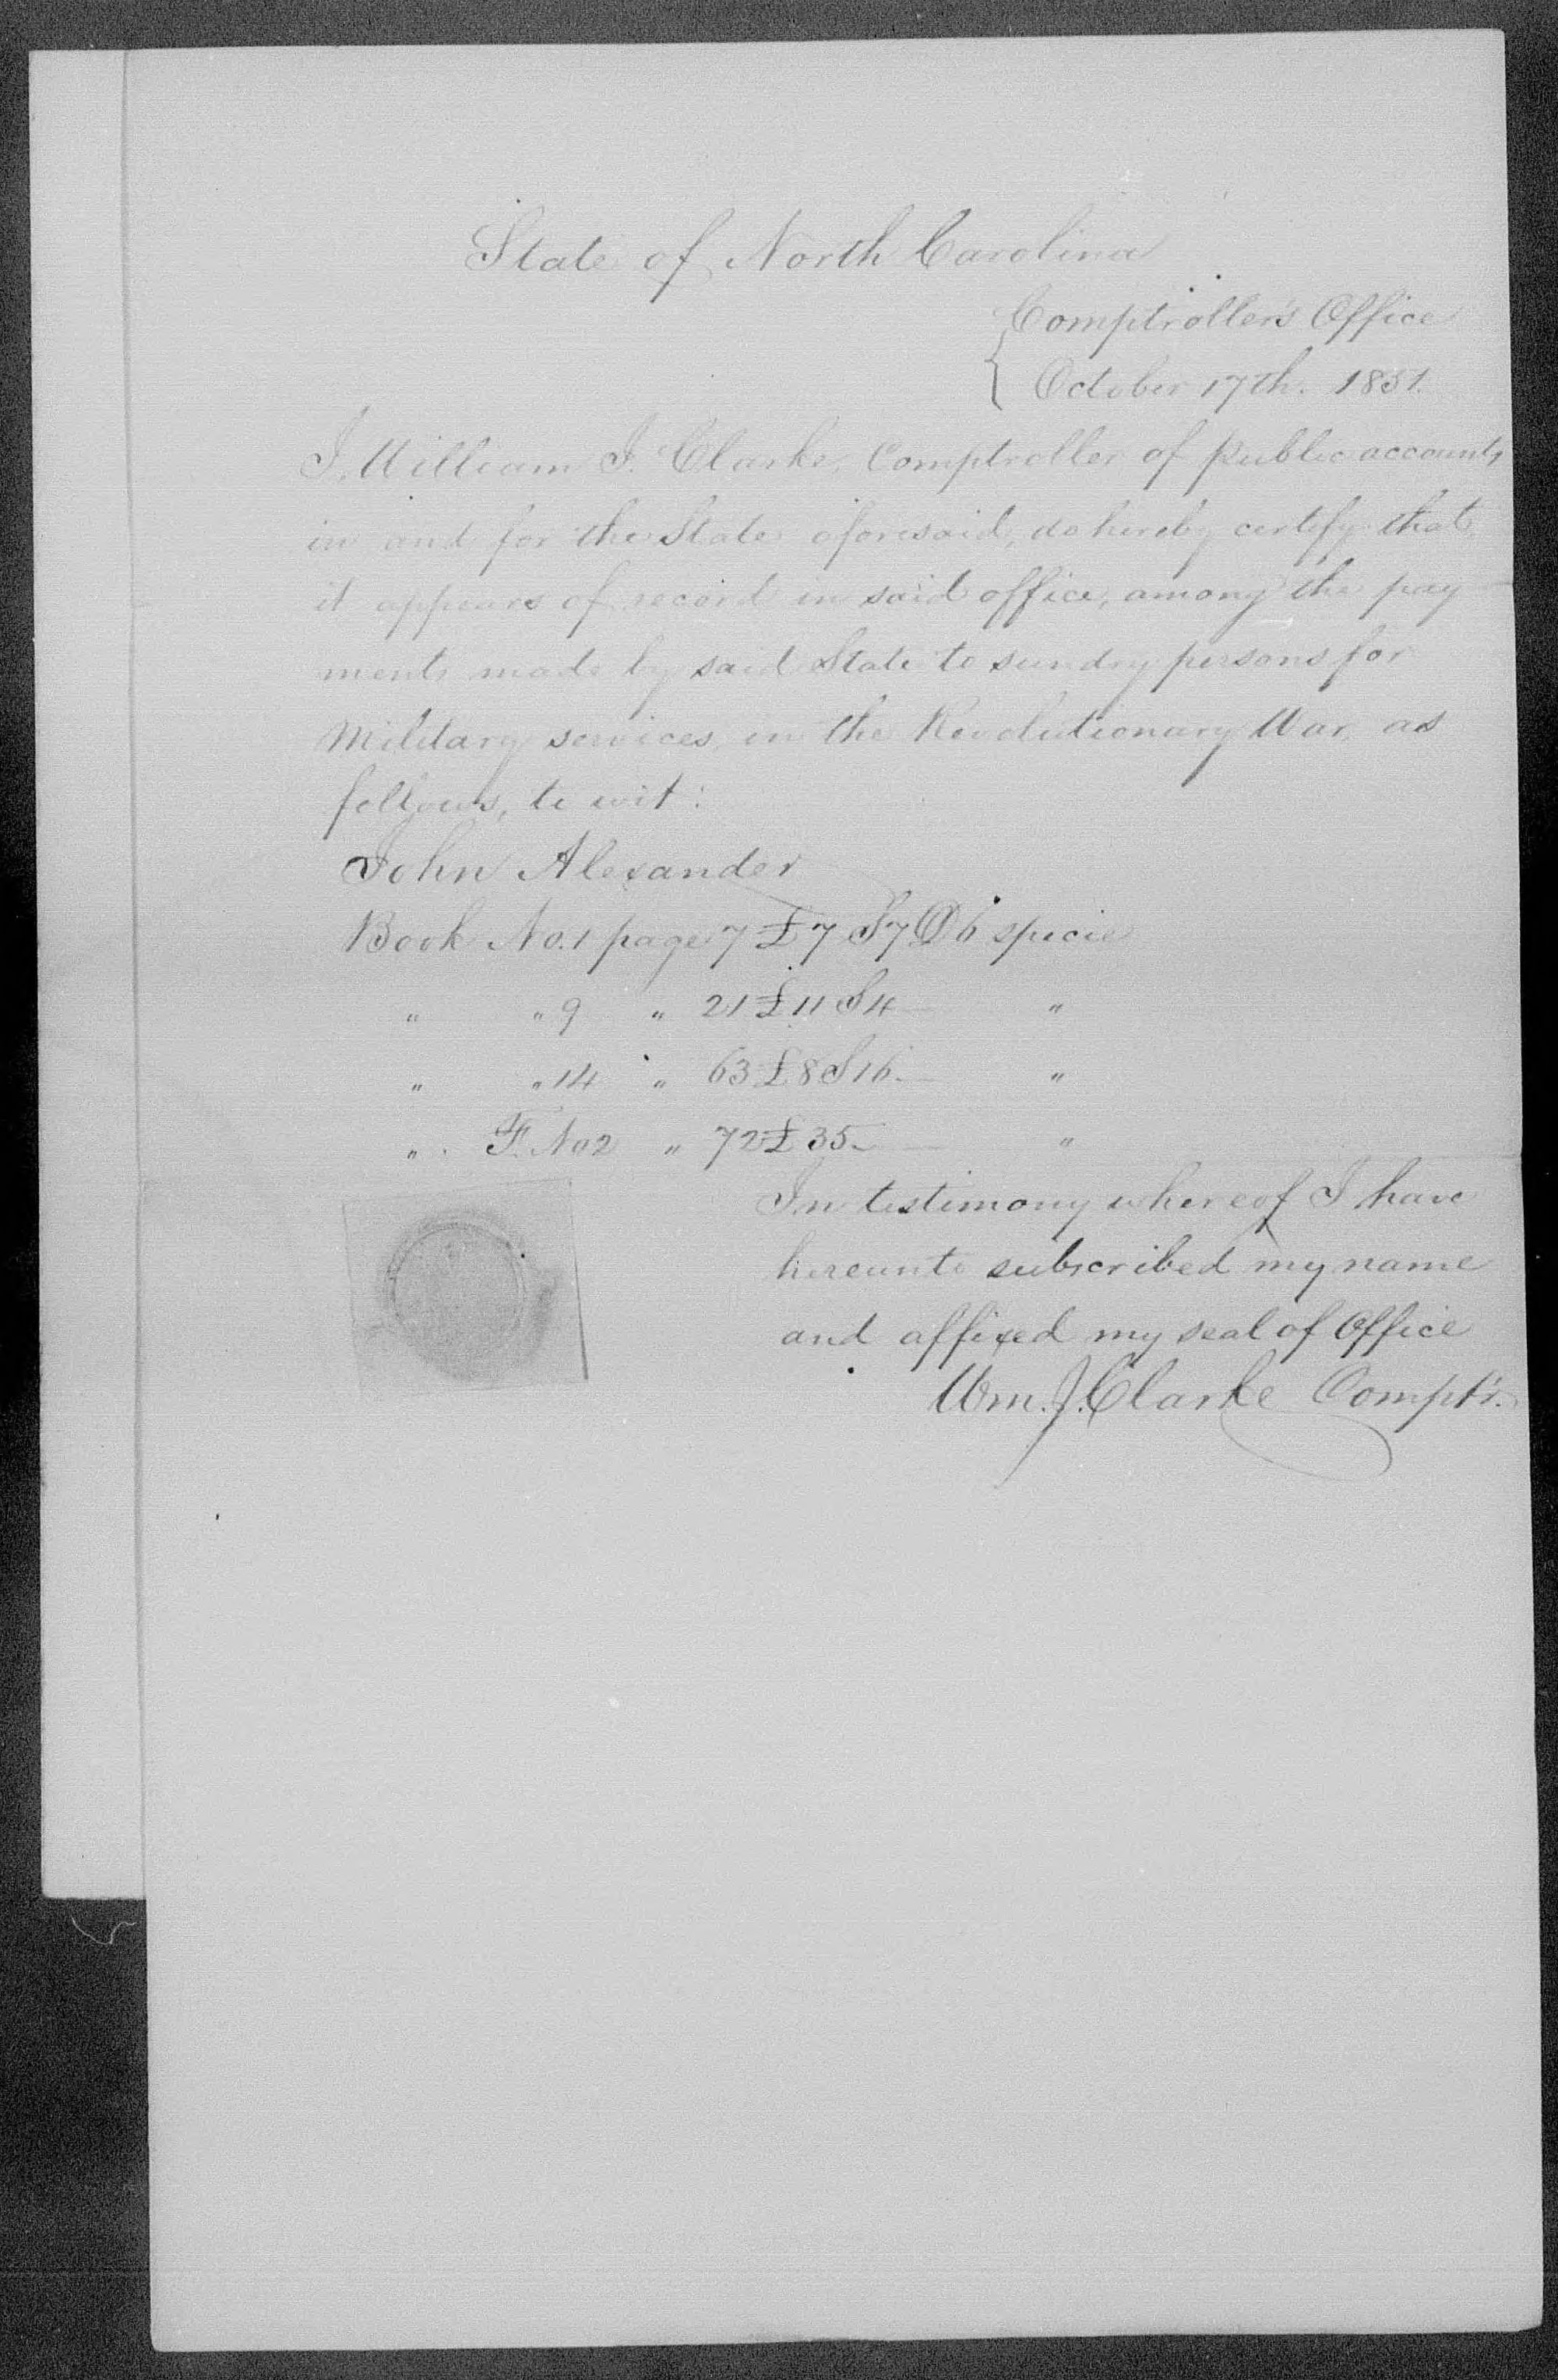 State of North Carolina
Comptroller's Office
October 17th. 1851.
I, William J. Clarke, Comptroller of public accounts
in and for the State aforesaid, do hereby certify that
it appears of record in said office, among the pay
ments made by said State to sundry persons for
Military services in the Revolutionary War, as
follows, to wit:
John Alexander
Book No. 1 page 7 £7 S7 D6 specie
" " 9 " 21 £11 S4 — "
" " 14 " 63 £8 S16. — "
" F. No 2 " 72 £35 — "
In testimony whereof I have
hereunto subscribed my name
and affixed my seal of Office
Wm. J. Clarke Compt'r.